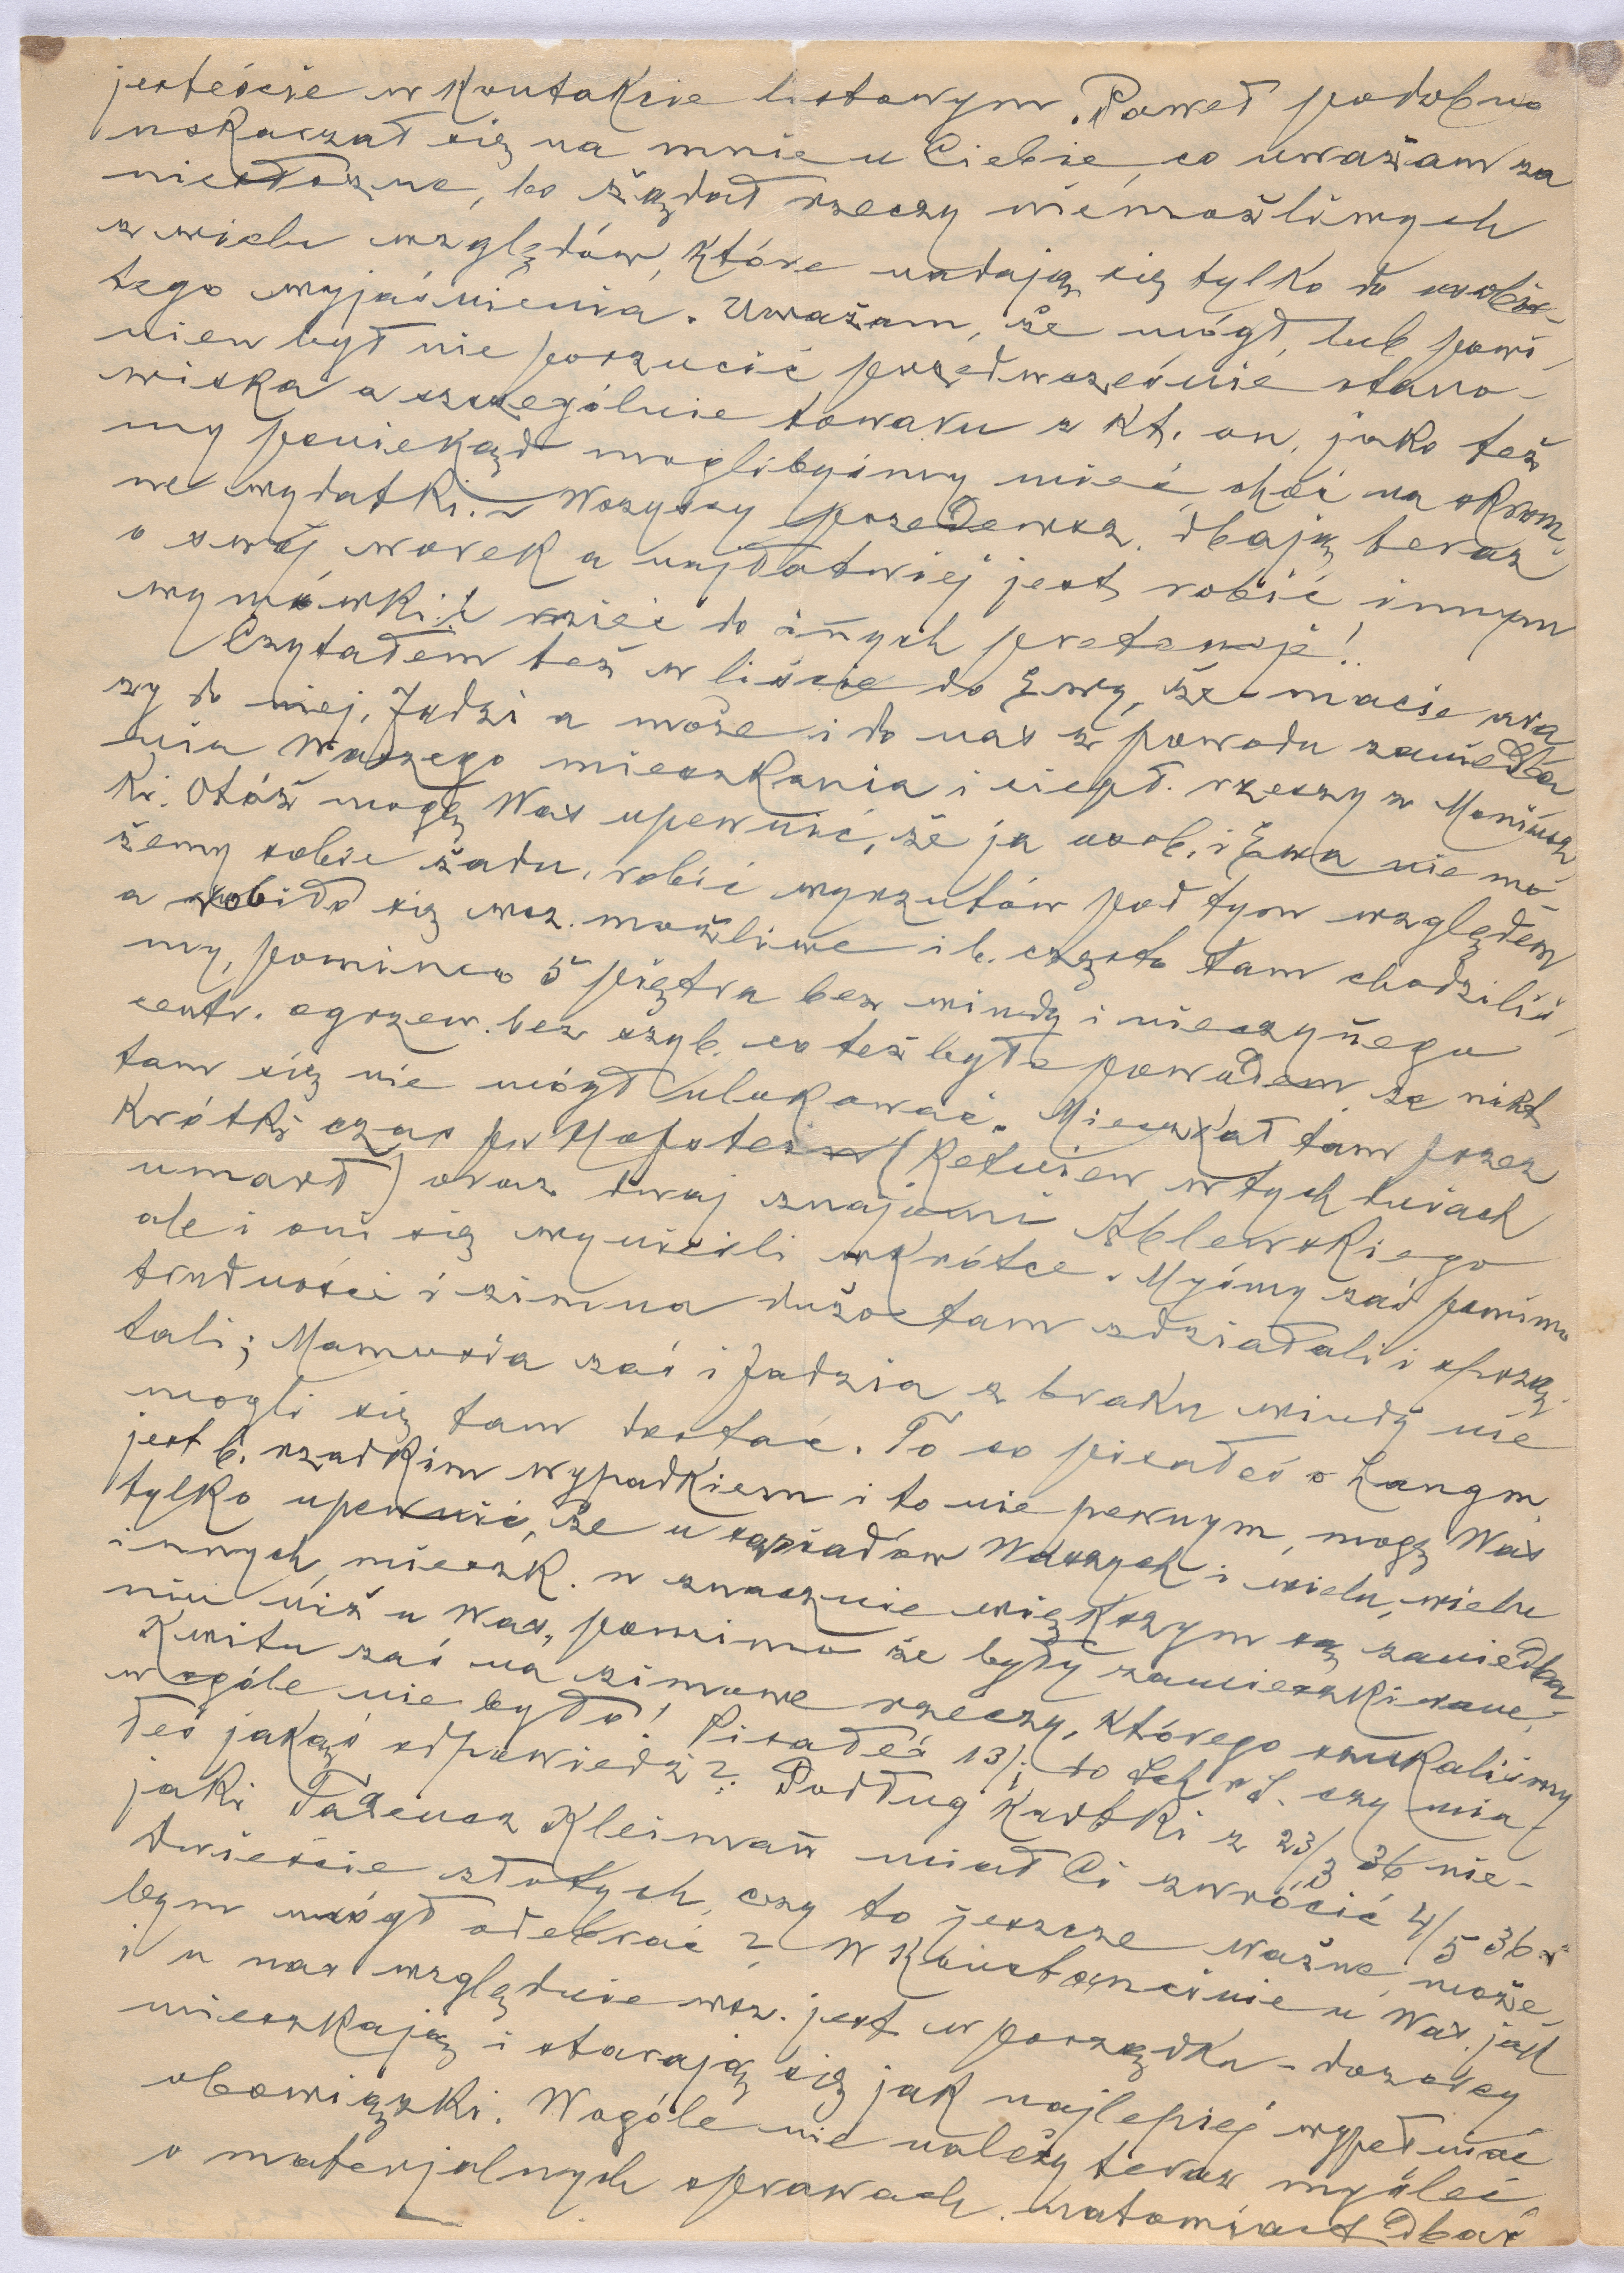 jesteście w kontakcie listowym. Paweł podobno
uskarżał się na mnie u Ciebie, co uważam za
niesłuszne, bo żądał rzeczy niemożliwych
z wielu względów, które nadają się tylko do osobis-
tego wyjaśnienia. Uważam, że mógł, lub powi
nien był nie porzucić przedwcześnie stano-
wiska a szczególnie towaru z kt. on, jako też
my poniekąd moglibyśmy mieć choć na skrom-
ne wydatki. – Wszyscy przedewsz. dbają teraz
o swój worek a najłatwiej jest robić innym
wymówki i rościć do innych pretensje!
Czytałem też w liście do Ewy, że macie ura
zy do niej, Jadzi a może i do nas z powodu zaniedba
nia Waszego mieszkania i ciepł. rzeczy z Moniusz
ki. Otóż mogę Was upewnić, że ja osob. i Ewa nie mo-
żemy sobie żadn. robić wyrzutów pod tym względem
a robiło się wsz. możliwe i b. często tam chodziliś-
my, pomimo 5 piętra bez windy i nieczynnego
centr. ogrzew. bez szyb. co też było powodem że nikt
tam się nie mógł ulokować. Mieszkał tam przez
krótki czas p.
umarł) oraz dwaj znajomi Ablewskiego
ale i oni się wynieśli wkrótce. Myśmy zaś pomimo
trudności i zimna dużo tam zdziałali i sprzą-
tali; Mamusia zaś i Jadzia z braku windy nie
mogli się tam dostać. To co pisałeś o Langm.
jest b. rzadkim wypadkiem i to nie pewnym, mogę Was
tylko upewnić, że u sąsiadów Waszych i wielu, wielu
innych, mieszk. w znacznie większym są zaniedba-
niu niż u Was, pomimo że były zamieszkiwane,
Kwitu zaś na zimowe rzeczy, którego szukaliśmy
wogóle nie było! Pisałeś 13/i do czy mia-
łeś jakąś odpowiedź? Podług kartki z 23/3 36 nie-
jaki Tadeusz Kleinman miał Ci zwrócić 4/5 36 r.
dwieście złotych, czy to jeszcze ważne, może
bym mógł odebrać? W Konstancinie u Was jak
i u nas względnie wsz. jest w porządku – dozorcy
mieszkają i starają się jak najlepiej wypełniać
obowiązki. Wogóle nie należy teraz myśleć
o materjalnych sprawach, natomiast dbać